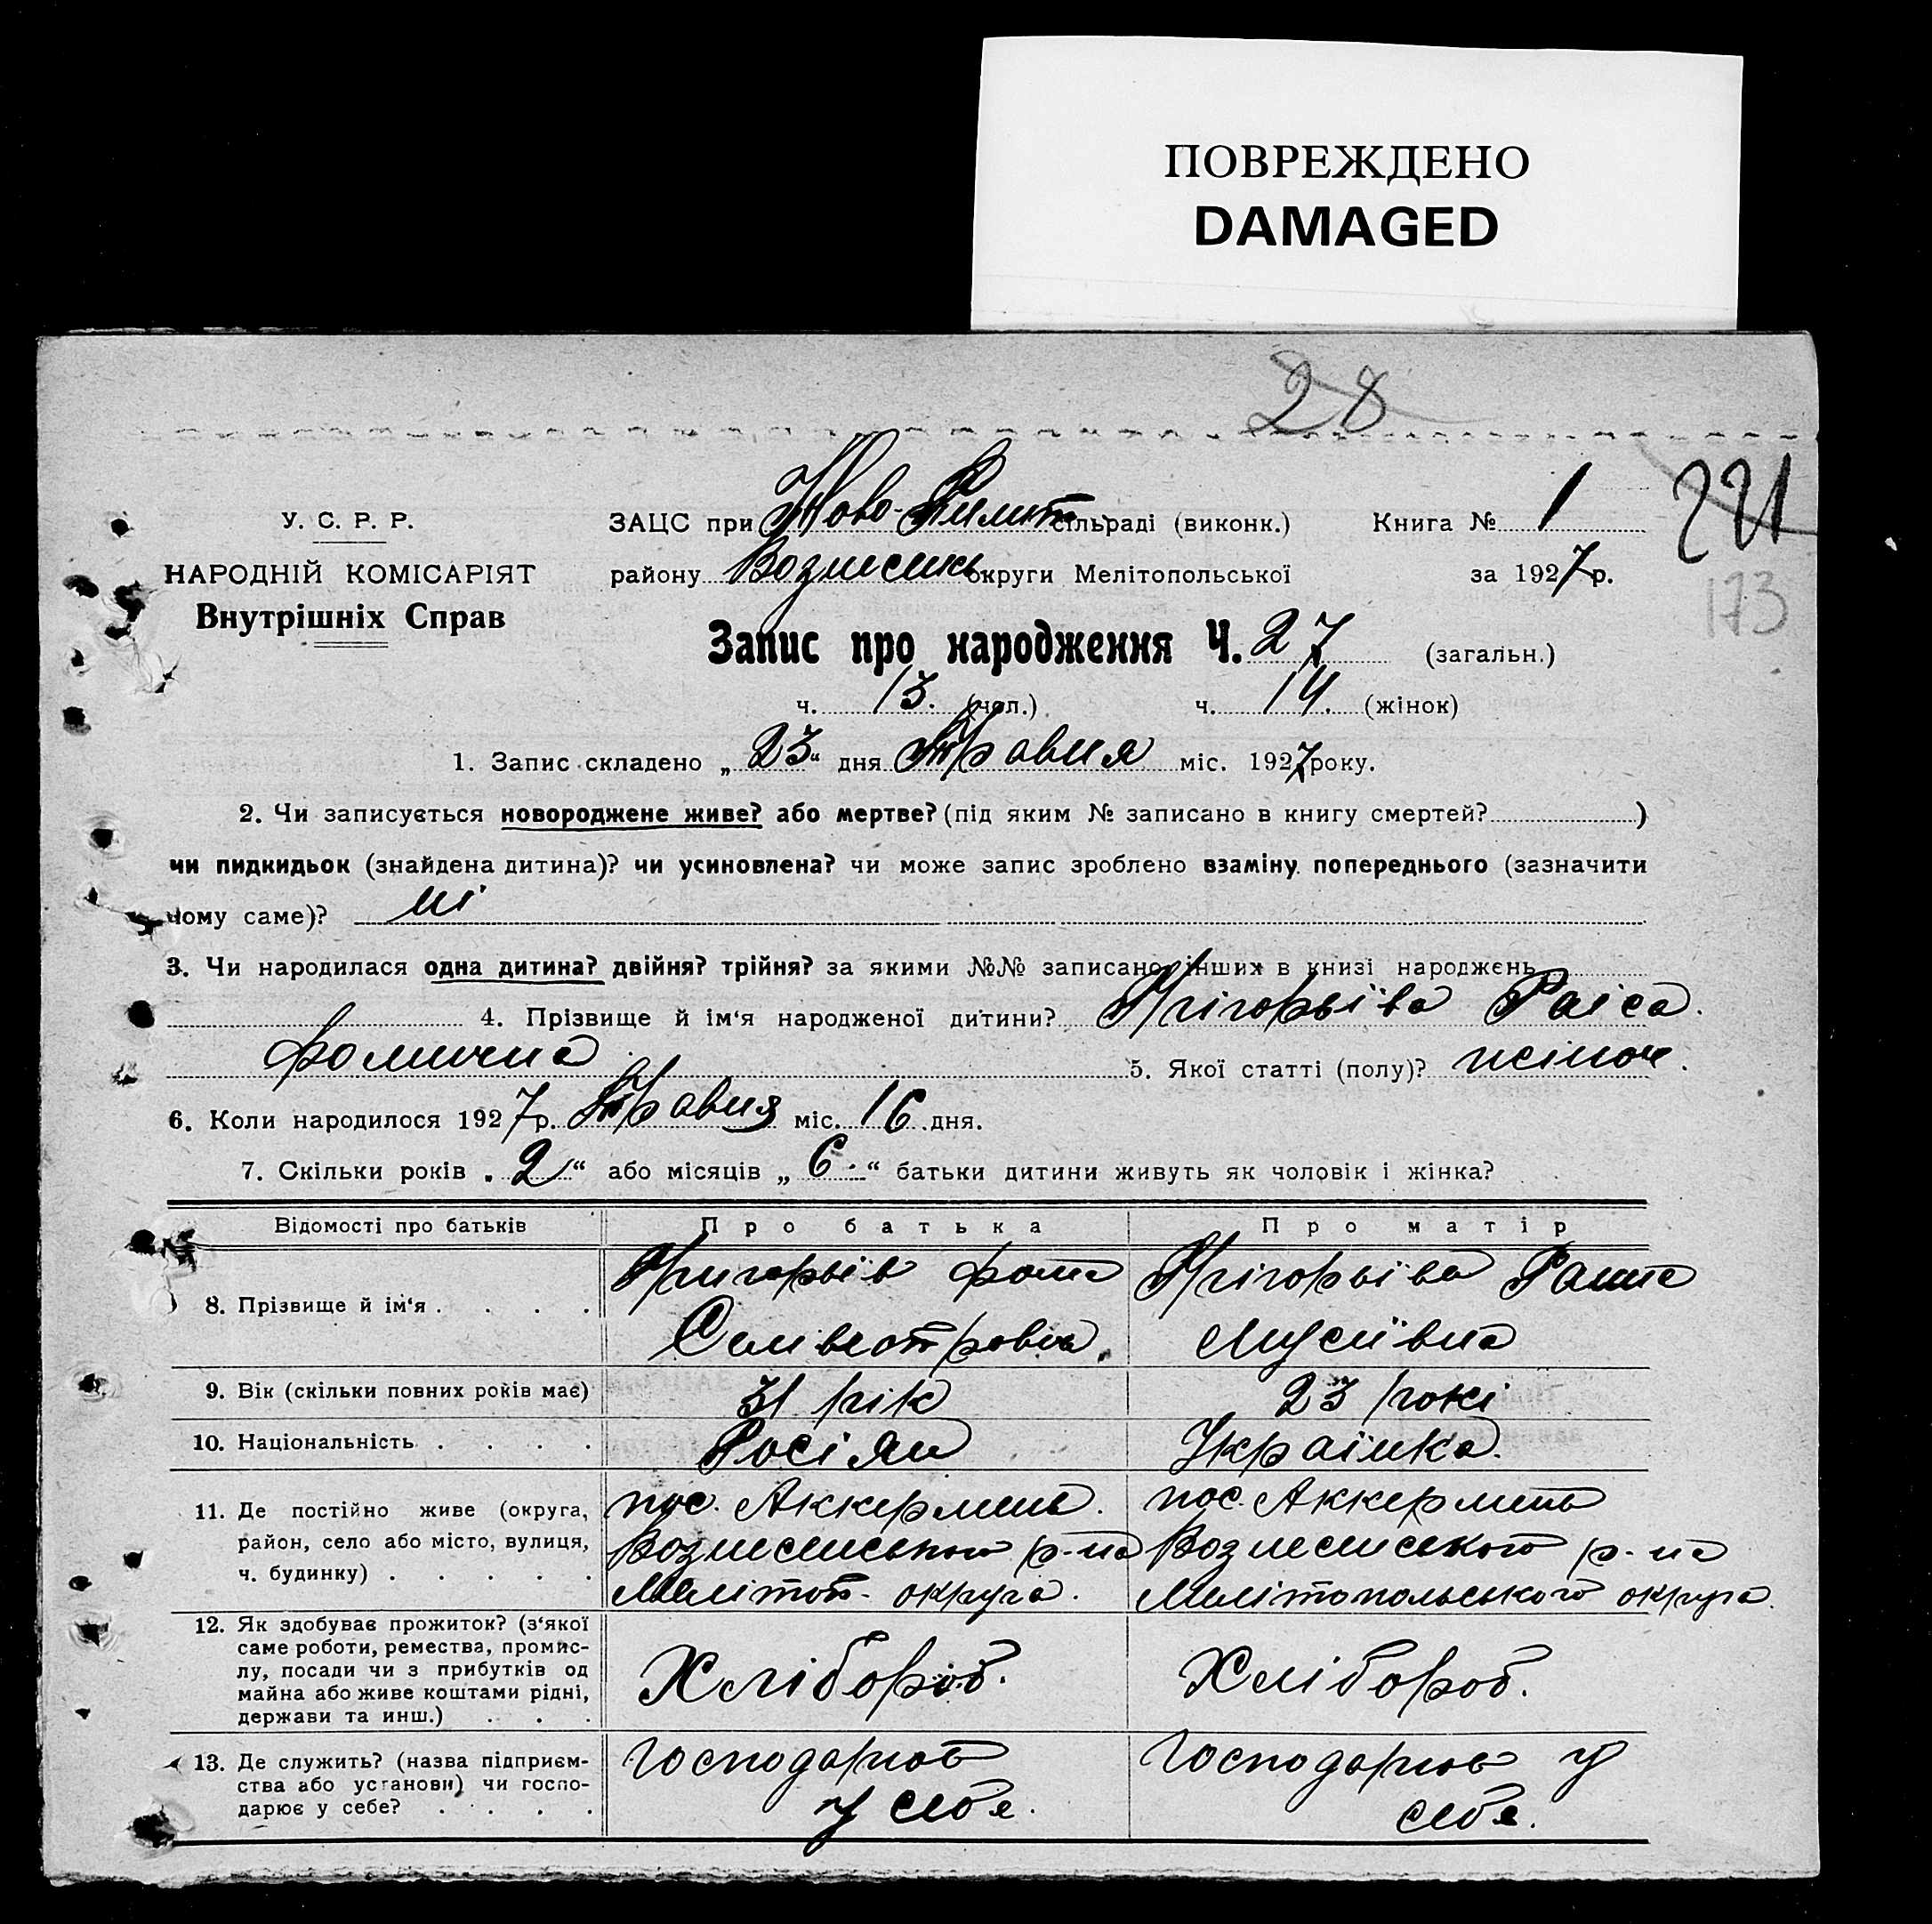 ПОВРЕЖДЕНО
DAMAGED
28
У. С. Р. Р.
НАРОДНІЙ КОМІСАРІЯТ
Внутрішніх Справ
221
173
ЗАЦС при Ново- сільраді (виконк.) Книга № 1
району Вознесенсь округи Мелітопольської за 1927 р.
Запис про народження Ч. 27 (загальн.)
ч. 13. (чол.) ч. 14. (жінок)
1. Запис складено „ 23 “ дня Травня міс. 1927 року.
2. Чи записується новороджене живе? або мертве? (під яким № записано в книгу смертей? )
чи пидкидьок (знайдена дитина)? чи усиновлена? чи може запис зроблено взаміну попереднього (зазначити
чому саме)? ні
3. Чи народилася одна дитина? двійня? трійня? за якими №№ записано інших в книзі народжень
4. Прізвище й ім‘я народженої дитини? Григорьїва Раіса.
Фомична 5. Якої статті (полу)? жіноч.
6. Коли народилося 1927 р. Травня міс. 16 дня.
7. Скільки років „ 2 “ або місяців „ 6 “ батьки дитини живуть як чоловік і жінка?
Відомості про батьків Про батька Про матір
8. Прізвище й ім‘я . . . . Григорьїв Фома Григорьїва
Мусіївна
9. Вік (скільки повних років має) 31 рік 23 рокі
10. Національність . . . . Росіян Украінка.
11. Де постійно живе (округа, район, село або місто, вулиця, ч. будинку) . . . . . пос. Аккермень. пос. Аккермень
Вознесенського р-на Вознесенского р-на
Мелітоп- округа. Мелітопольського округа.
12. Як здобуває прожиток? (з‘якої саме роботи, ремества, промис-
лу, посади чи з прибутків од
майна або живе коштами рідні,
держави та инш.) . . . Хлібороб. Хлібороб.
13. Де служить? (назва підприєм-
ства або установи) чи госпо-
дарює у себе? . . . . Господарює Господарює у
у себе. себе.